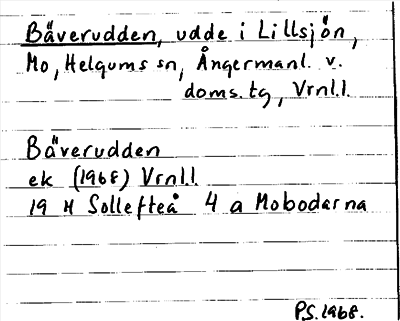 Bäverudden, udde i Lillsjön,
Mo, Helgums sn, Ångermanl. v.
doms.tg, Vrnl.l.
Bäverudden
ek (1968) Vrnl.l.
19 H Sollefteå 4 a Mobodarna
P.S. 1968.